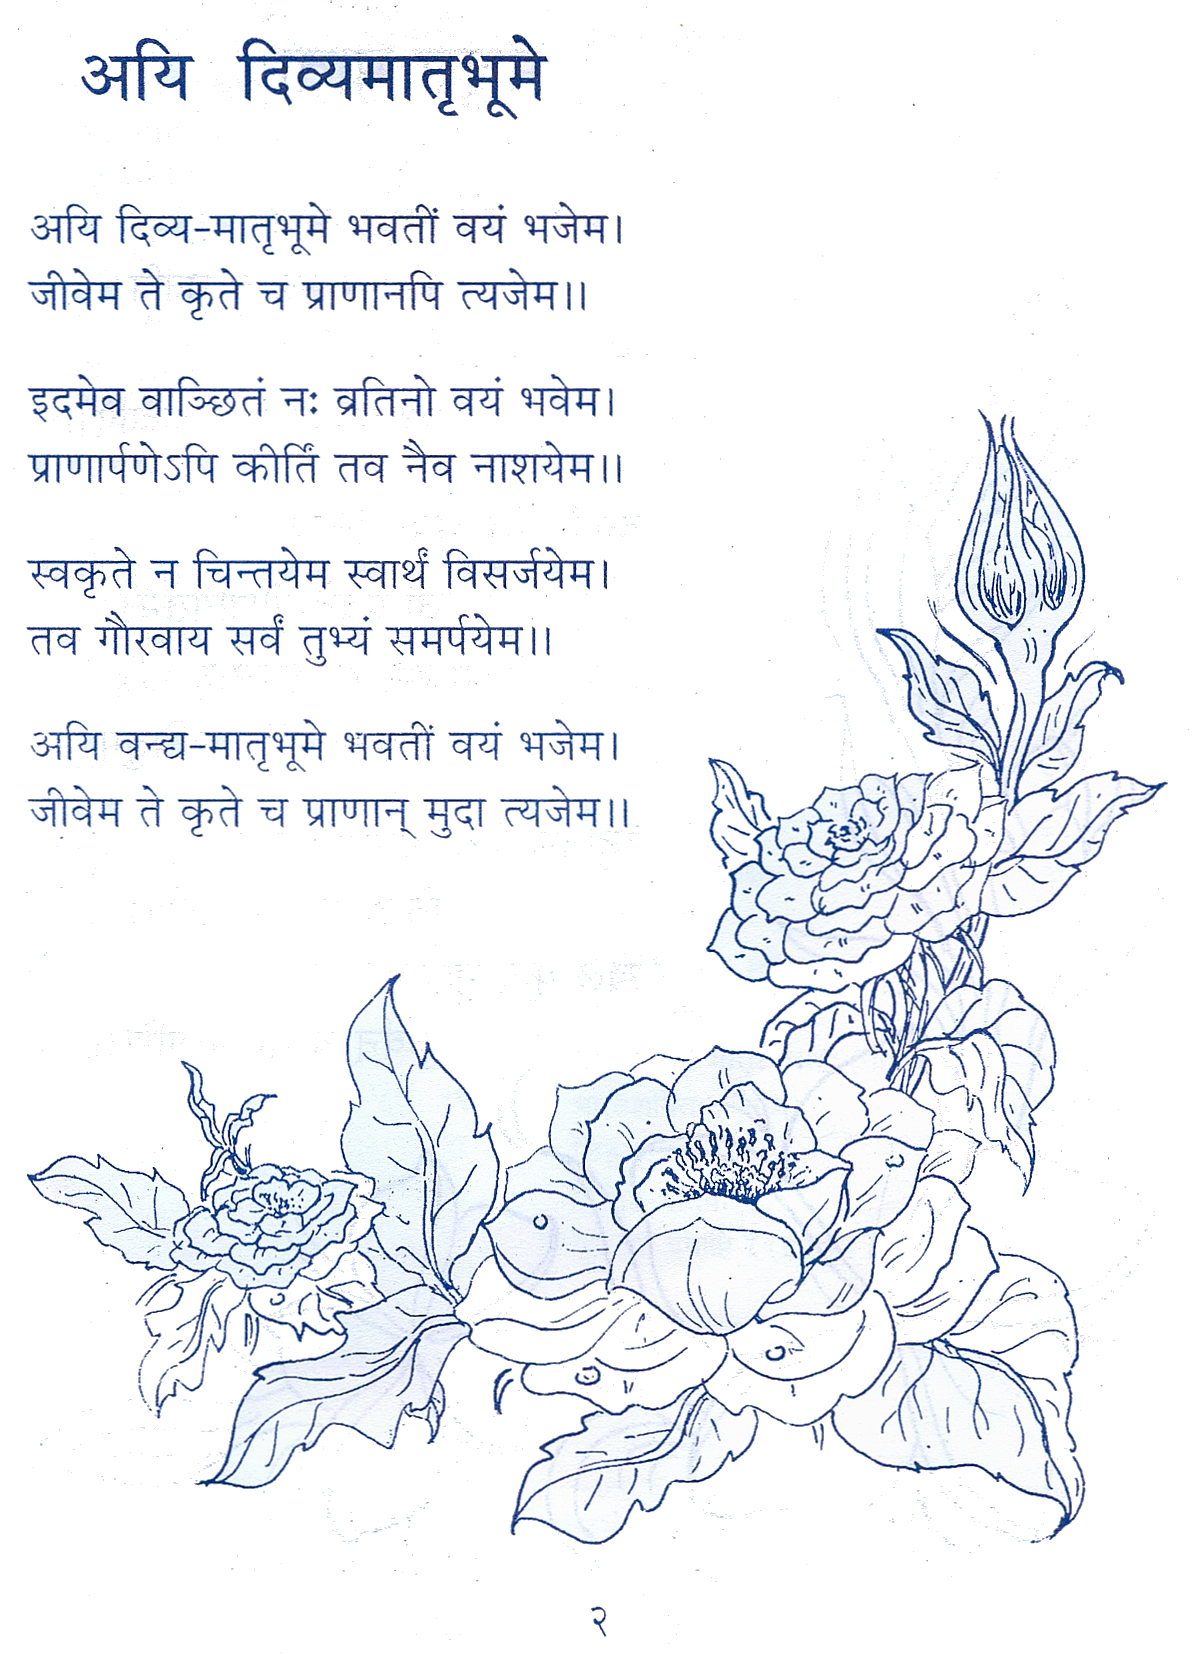 अयि दिव्यमातृभूमे
अयि दिव्य-मातृभूमे भवतीं वयं भजेम।
जीवेम ते कृते च प्राणानपि त्यजेम।।
इदमेव वाञ्छितं नः व्रतिनो वयं भवेम।
प्राणार्पणेऽपि कीर्तिं तव नैव नाशयेम।।
स्वकृते न चिन्तयेम स्वार्थं विसर्जयेम।
तव गौरवाय सर्वं तुभ्यं समर्पयेम।।
अयि वन्द्य-मातृभूमे भवतीं वयं भजेम।
जीवेम ते कृते च प्राणान् मुदा त्यजेम।।
२